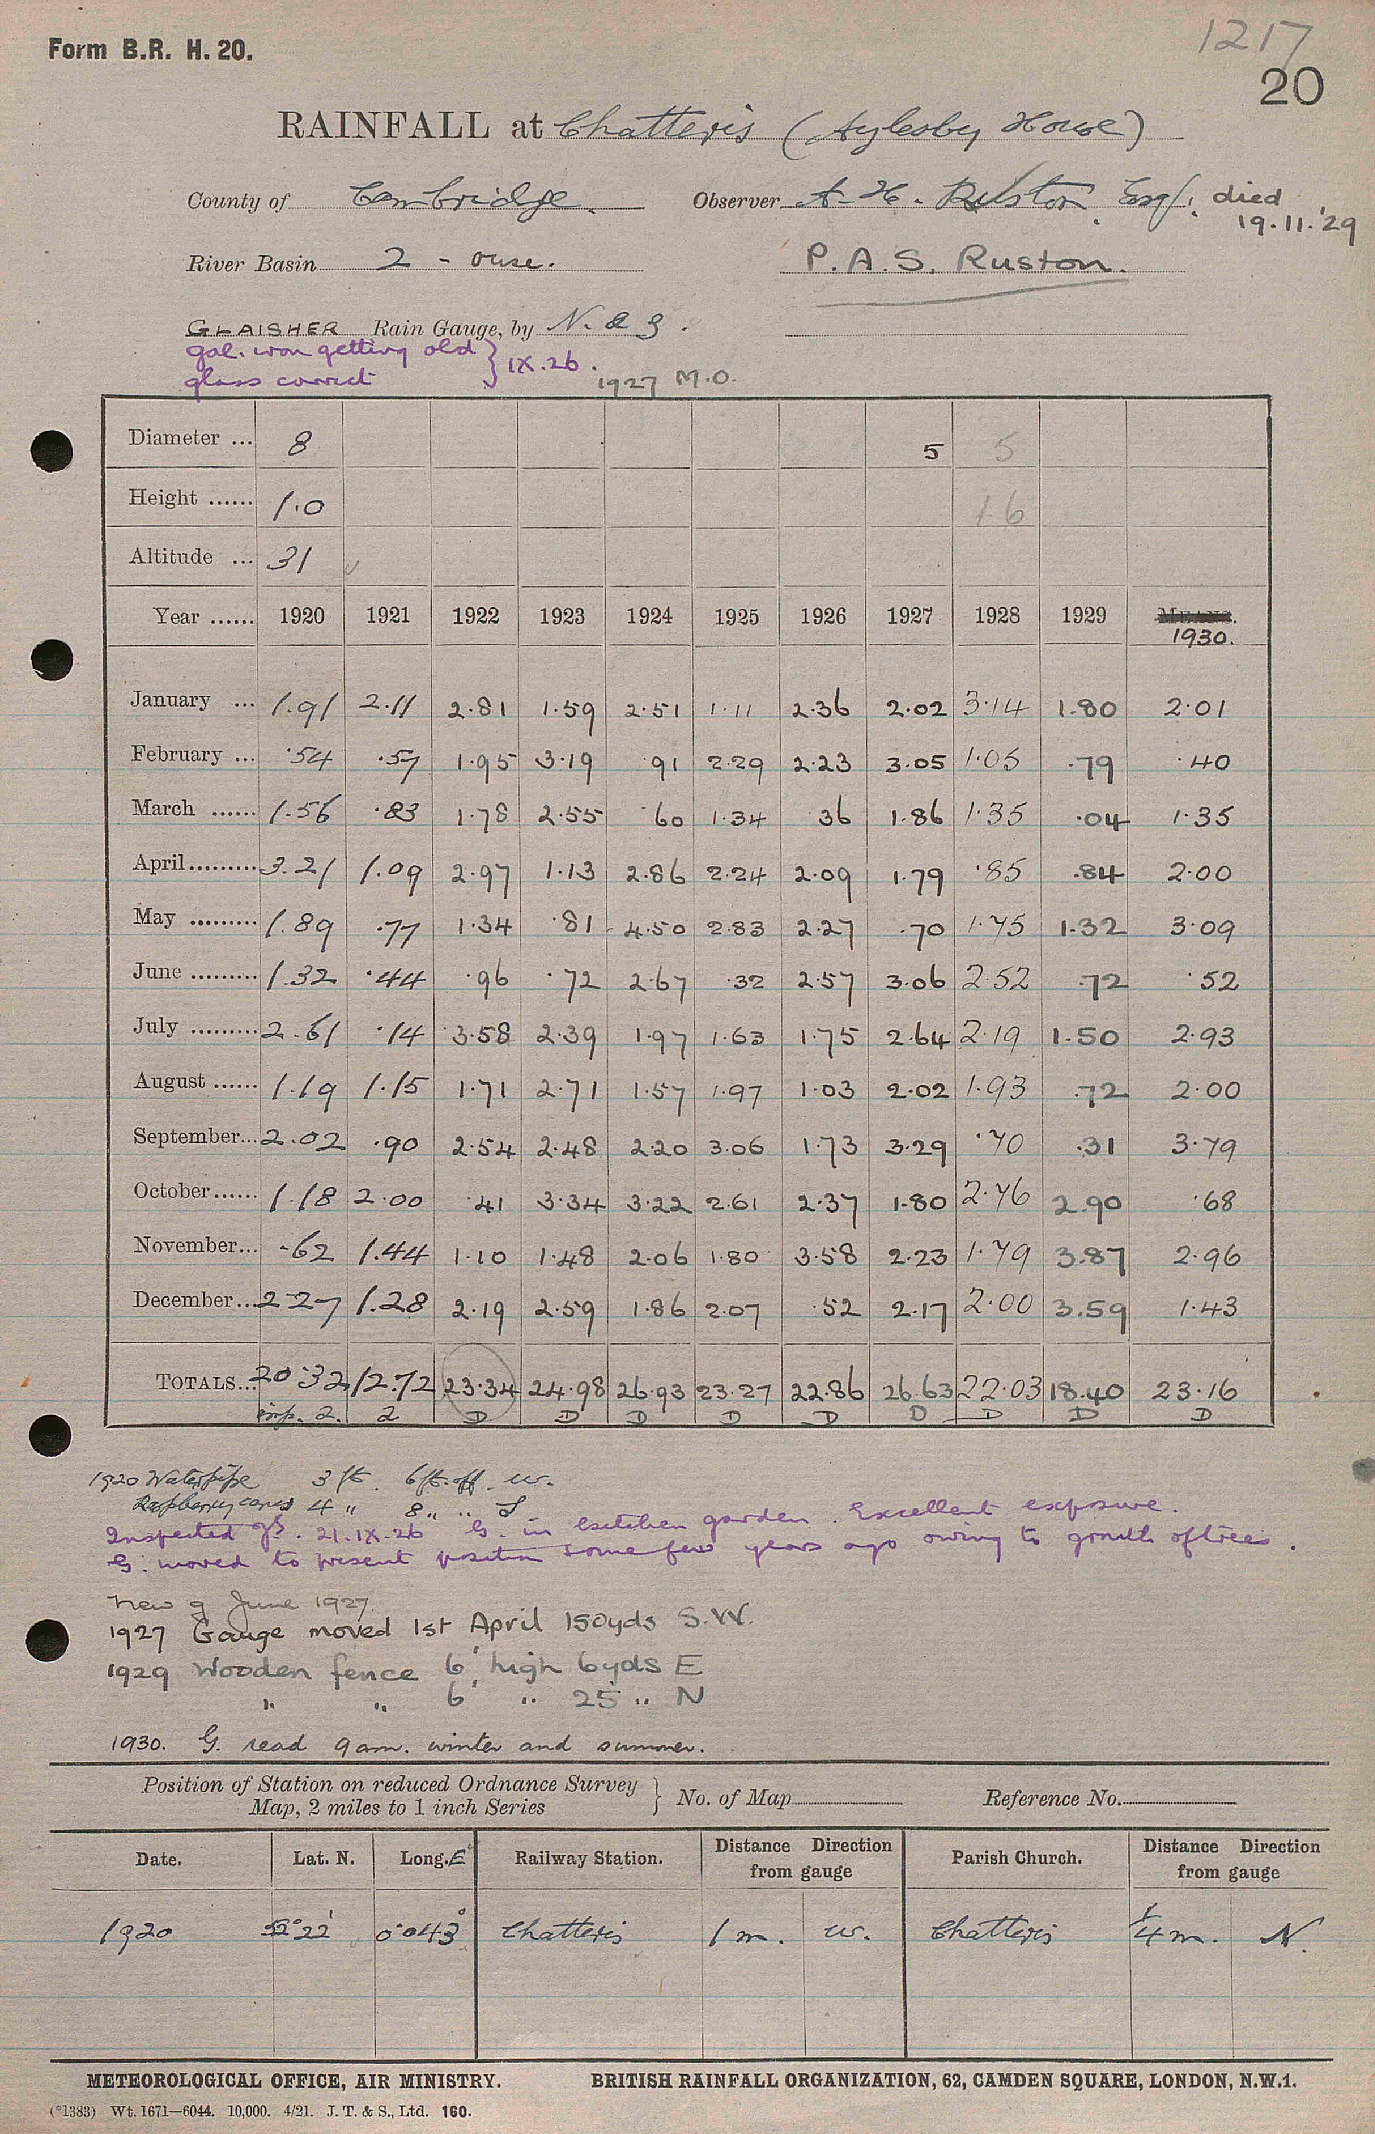 1217
Form B.R. H. 20.
20
RAINFALL at Chatteris (Aylesby House)
County of Cambridge. Observer A. H. Ruston Esq. died 19.11.'29
River Basin 2 - Ouse. P. A. S. Ruston.
GLAISHER Rain Gauge, by N. & Z.
gal. iron getting old } IX.26.
glass correct
1927 M.O.
Diameter ... 8 5 5
Height ...... 1.0 1.6
Altitude ... 31
Year ...... 1920 1921 1922 1923 1924 1925 1926 1927 1928 1929 MEANS. 1930.
January ... 1.91 2.11 2.81 1.59 2.51 1.11 2.36 2.02 3.14 1.80 2.01
February ... .54 .57 1.95 3.19 .91 2.29 2.23 3.05 1.05 .79 .40
March ...... 1.56 .83 1.78 2.55 .60 1.34 36 1.86 1.35 .04 1.35
April ......... 3.21 1.09 2.97 1.13 2.86 2.24 2.09 1.79 .85 .84 2.00
May ......... 1.89 .77 1.34 .81 4.50 2.83 2.27 .70 1.75 1.32 3.09
June ......... 1.32 .44 .96 .72 2.67 .32 2.57 3.06 2.52 .72 .52
July ......... 2.61 .14 3.58 2.39 1.97 1.63 1.75 2.64 2.19 1.50 2.93
August ...... 1.19 1.15 1.71 2.71 1.57 1.97 1.03 2.02 1.93 .72 2.00
September... 2.02 .90 2.54 2.48 2.20 3.06 1.73 3.29 .70 .31 3.79
October...... 1.18 2.00 .41 3.34 3.22 2.61 2.37 1.80 2.76 2.90 .68
November... .62 1.44 1.10 1.48 2.06 1.80 3.58 2.23 1.79 3.87 2.96
December... 2.27 1.28 2.19 2.59 1.86 2.07 .52 2.17 2.00 3.59 1.43
TOTALS... 20.32 12.72 23.34 24.98 26.93 23.27 22.86 26.63 22.03 18.40 23.16
2. 2 D D D D D D D D D
1920 Waterpipe 3 ft. 6 ft. off. w.
Raspberry canes 4 " 8 " " S
Inspected 21.IX.26 G. in kitchen garden. Excellent exposure.
G. moved to present position some few years ago owing to growth of trees.
New g June 1927
1927 Gauge moved 1st April 150yds S.W.
1929 Wooden fence 6' high 6yds E
" " 6' " 25 " N
1930. G. read 9am. winter and summer.
Position of Station on reduced Ordnance Survey Map, 2 miles to 1 inch Series } No. of Map Reference No.
Date. Lat. N. Long. E Railway Station. Distance Direction from gauge Parish Church. Distance Direction from gauge
1920 52°22' 0°043 Chatteris 1 m. w. Chatteris 1/4 m. N.
METEOROLOGICAL OFFICE, AIR MINISTRY. BRITISH RAINFALL ORGANIZATION, 62, CAMDEN SQUARE, LONDON, N.W.1.
(*1383) Wt. 1671—6044. 10,000. 4/21. J. T. & S., Ltd. 160.